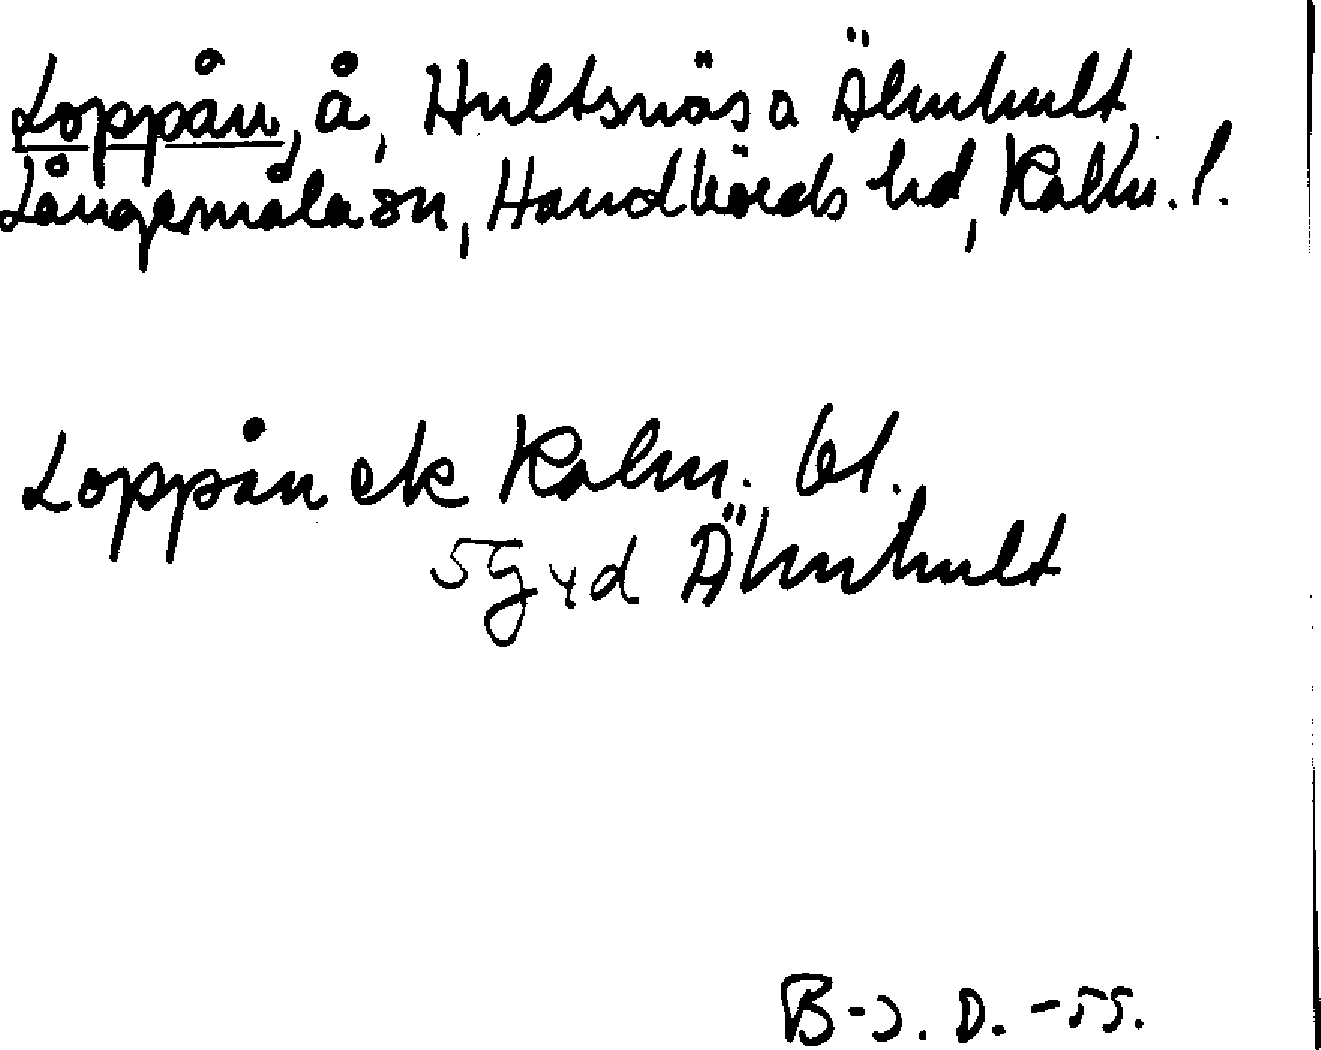 Loppån, å, Hultsnäs o Älmhult,
Långemåla sn, Handbörds hd, Kalm. l.
Loppån ek Kalm. bl.
5G yd Älmhult
B-J. D. -55.